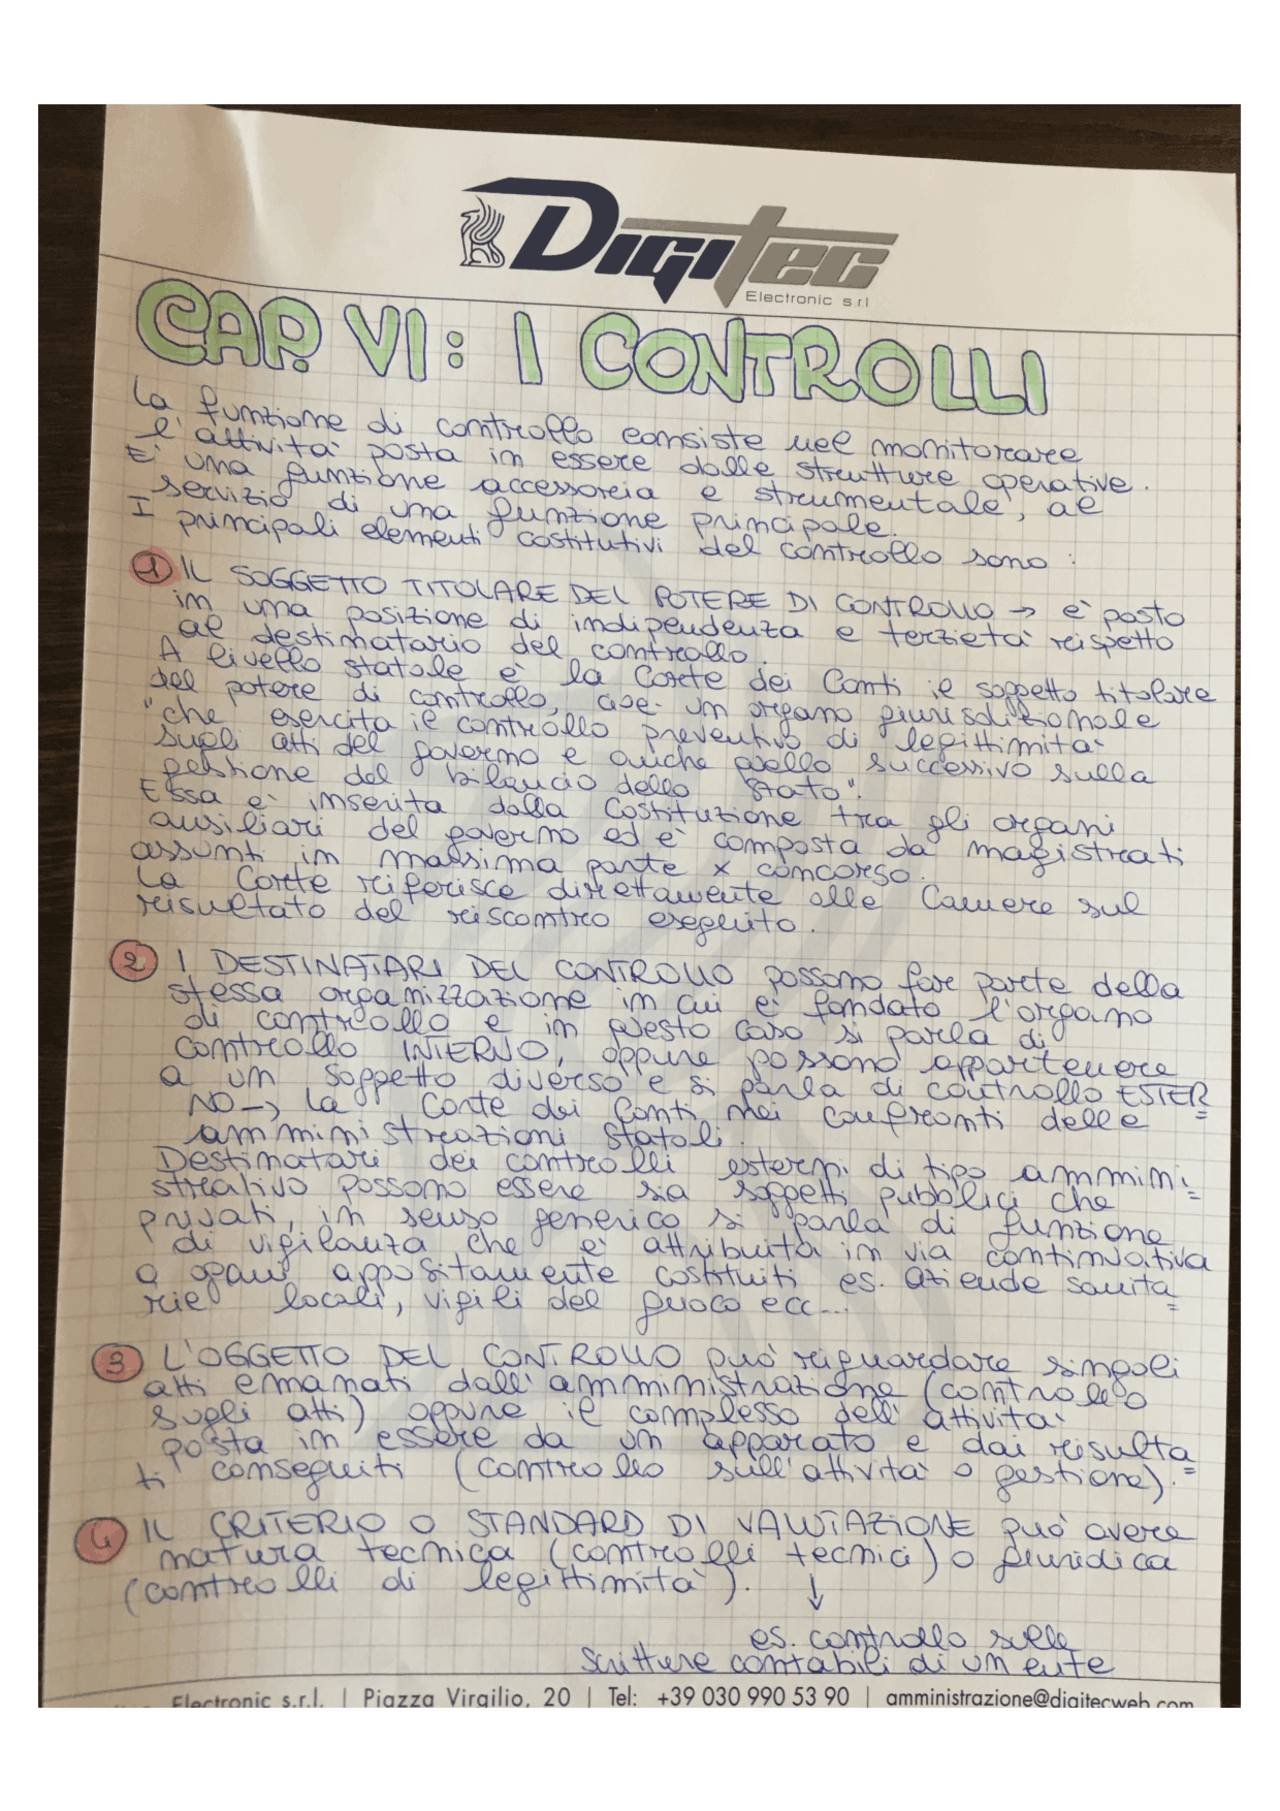 DIGITEC
Electronic s.r.l
CAP. VI: I CONTROLLI
La funzione di controllo consiste nel monitorare
l'attività posta in essere dalle strutture operative.
E' una funzione accessoria e strumentale, al
servizio di una funzione principale.
I principali elementi costitutivi del controllo sono:
1 IL SOGGETTO TITOLARE DEL POTERE DI CONTROLLO → è posto
in una posizione di indipendenza e terzietà rispetto
al destinatario del controllo.
A livello statale è la Corte dei Conti il soggetto titolare
del potere di controllo, cioè un organo giurisdizionale
"che esercita il controllo preventivo di legittimità
sugli atti del governo e anche quello successivo sulla
gestione del bilancio dello Stato".
Essa è inserita dalla Costituzione tra gli organi
ausiliari del governo ed è composta da magistrati
assunti in massima parte x concorso.
La Corte riferisce direttamente alle Camere sul
risultato del riscontro eseguito.
2 I DESTINATARI DEL CONTROLLO possono fare parte della
stessa organizzazione in cui è fondato l'organo
di controllo e in questo caso si parla di
controllo INTERNO, oppure possono appartenere
a un soggetto diverso e si parla di controllo ESTER=
NO → la Corte dei Conti nei confronti delle
amministrazioni statali.
Destinatari dei controlli esterni di tipo ammini=
strativo possono essere sia soggetti pubblici che
privati, in senso generico si parla di funzione
di vigilanza che è attribuita in via continuativa
a organi appositamente costituiti es. aziende sanita=
rie locali, vigili del fuoco ecc...
3 L'OGGETTO DEL CONTROLLO può riguardare singoli
atti emanati dall'amministrazione (controllo
sugli atti) oppure il complesso dell'attività
posta in essere da un apparato e dai risulta=
ti conseguiti (controllo sull'attività o gestione).
4 IL CRITERIO O STANDARD DI VALUTAZIONE può avere
natura tecnica (controlli tecnici) o giuridica
(controlli di legittimità). ↓
es. controllo sulle
scritture contabili di un ente
Electronic s.r.l. | Piazza Virgilio, 20 | Tel: +39 030 990 53 90 | amministrazione@digitecweb.com